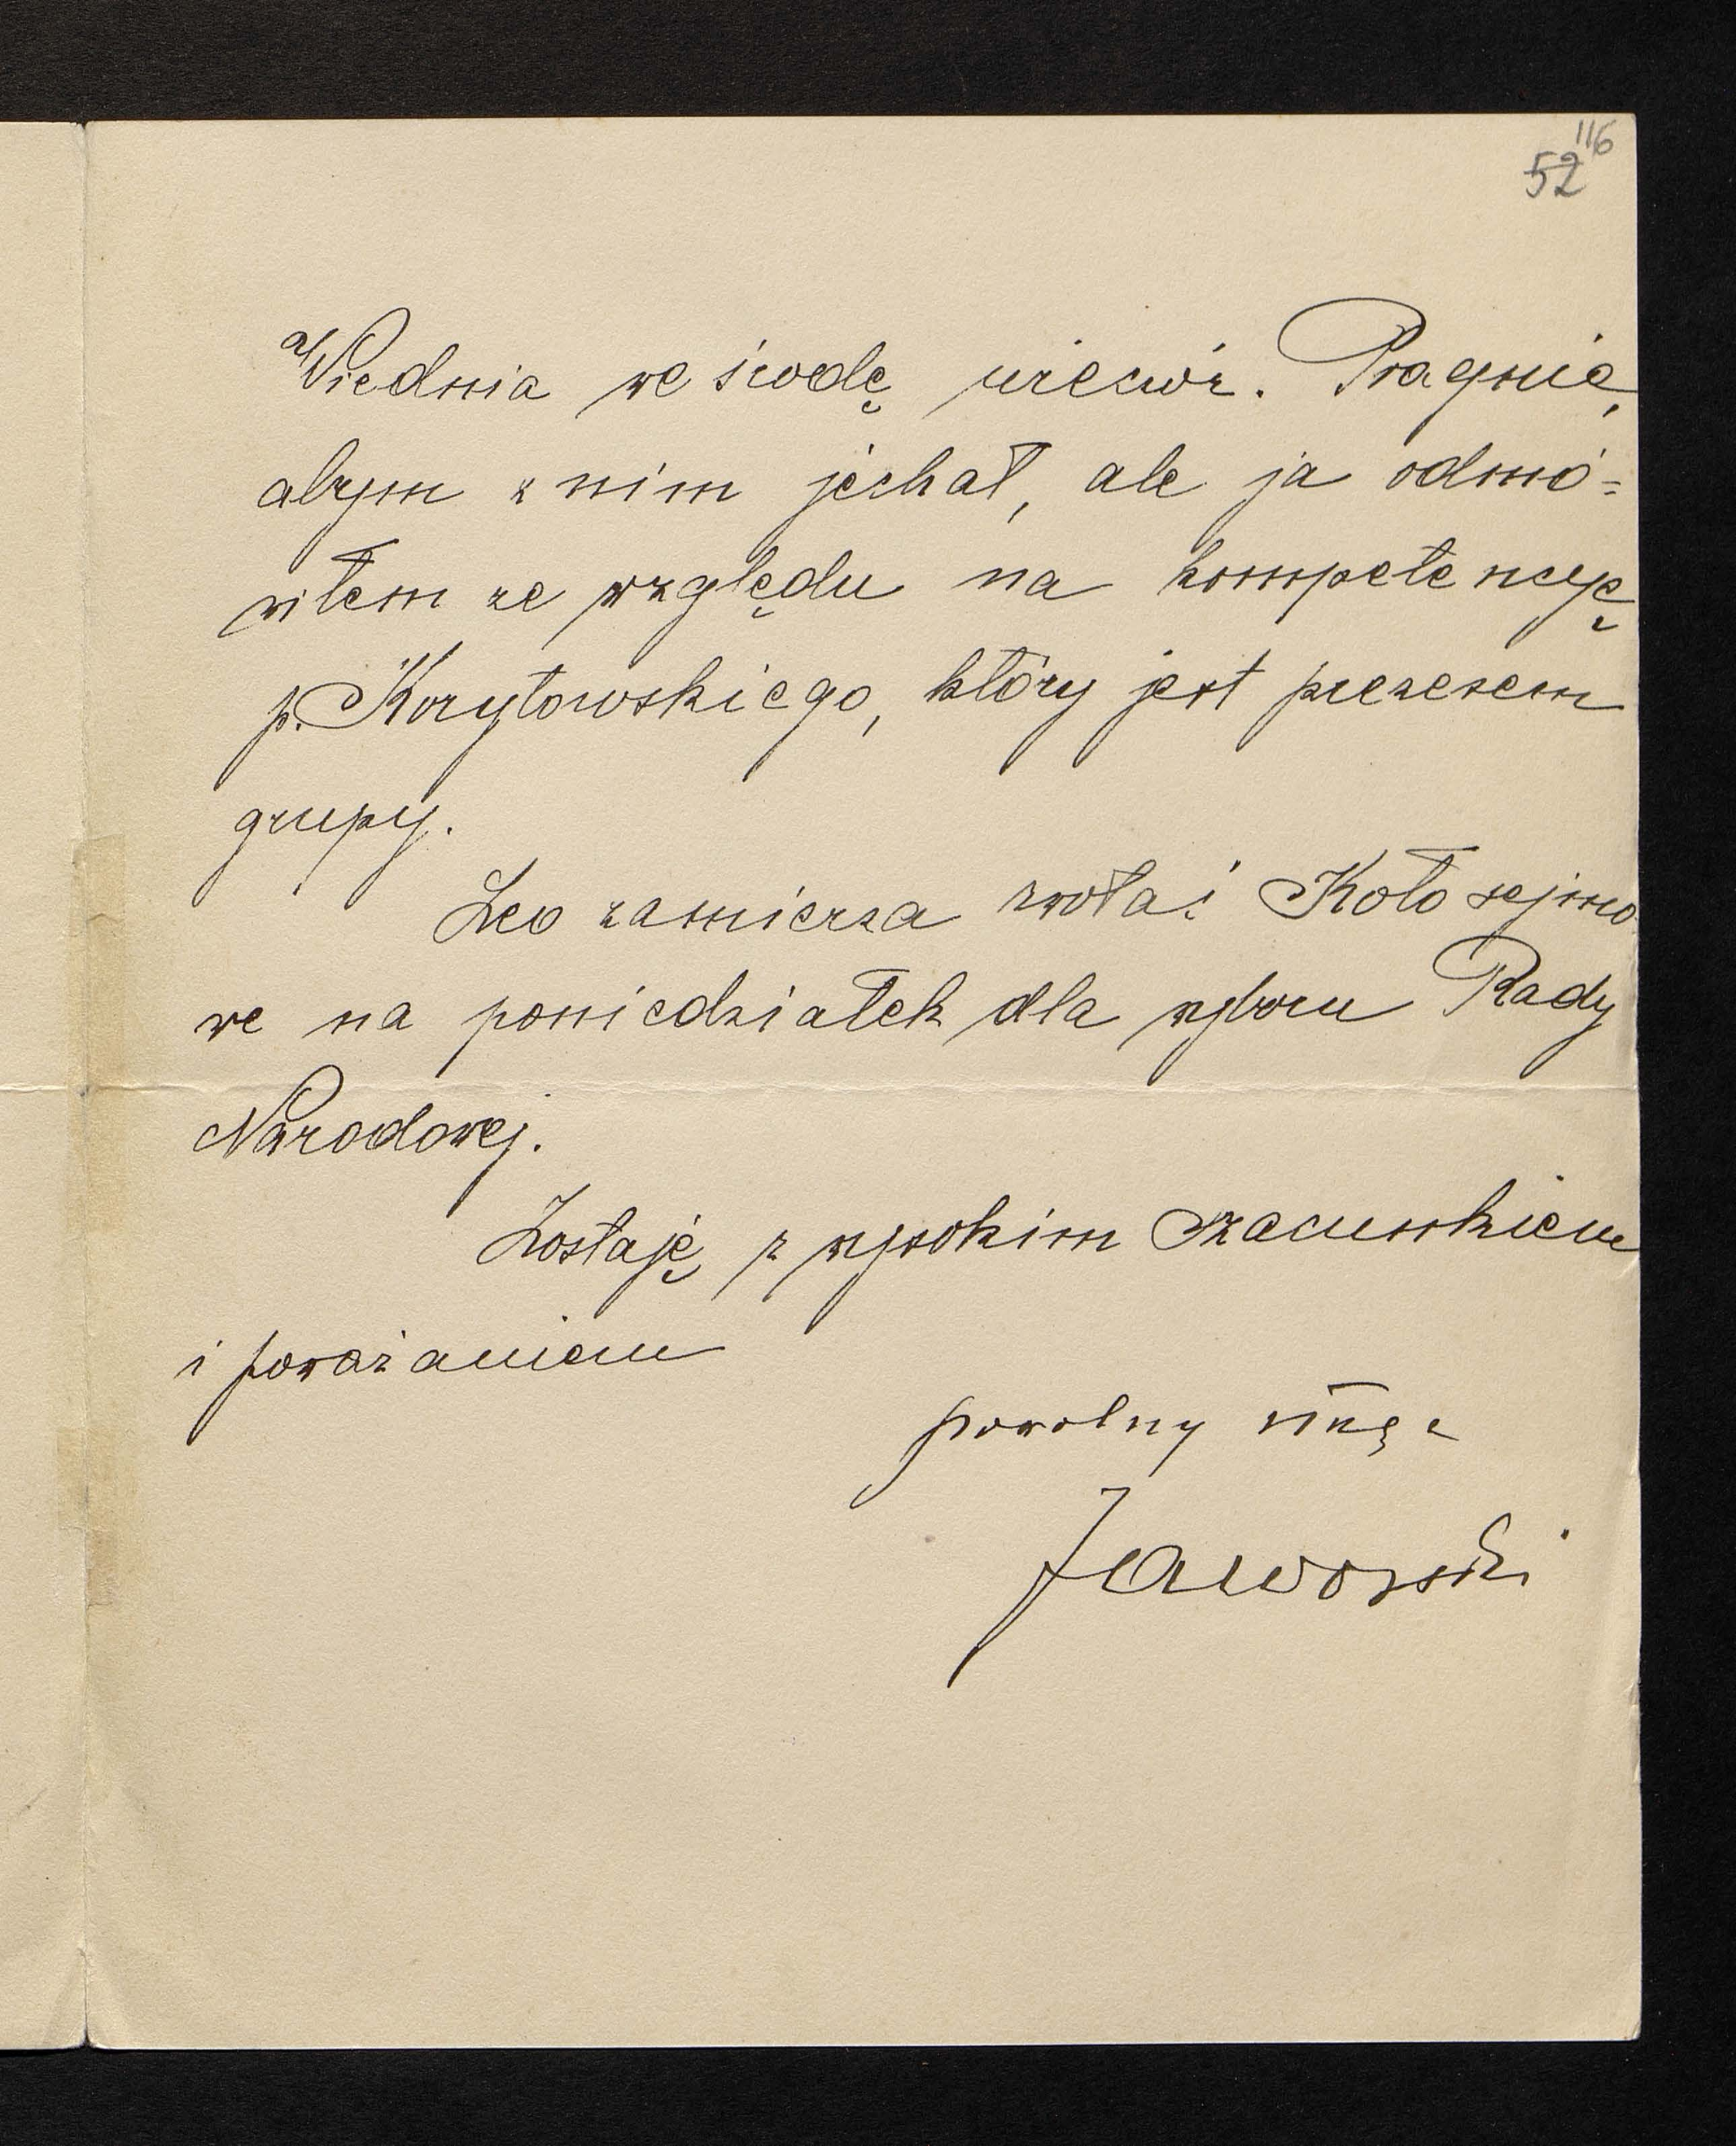 116
52
Wiednia we środę wieczór. Pragnie,
abym z nim jechał, ale ja odmó=
wiłem ze względu na kompetencyę
p. Korytowskiego, który jest prezesem
grupy.
Leo zamierza zwołać Koło sejmo
we na poniedziałek dla wyboru Rady
Narodowej.
Zostaję z wysokim szacunkiem
i poważaniem
powolny sługa
Jaworski